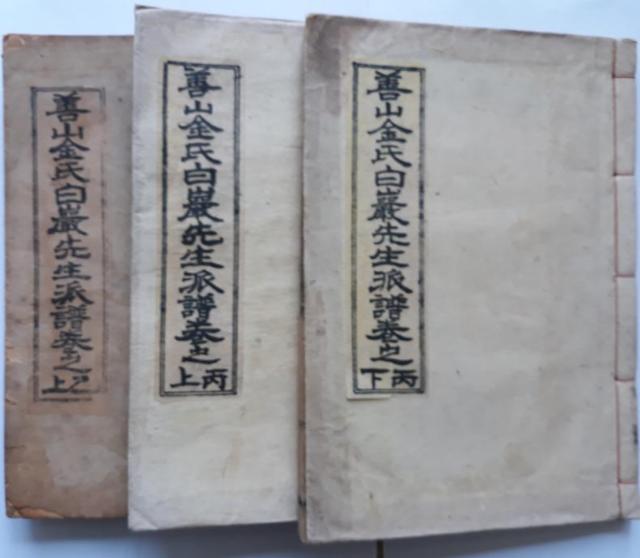 善山金氏白巖先生派譜卷之
乙上
善山金氏白巖先生派譜卷之
丙上
善山金氏白巖先生派譜卷之
丙下